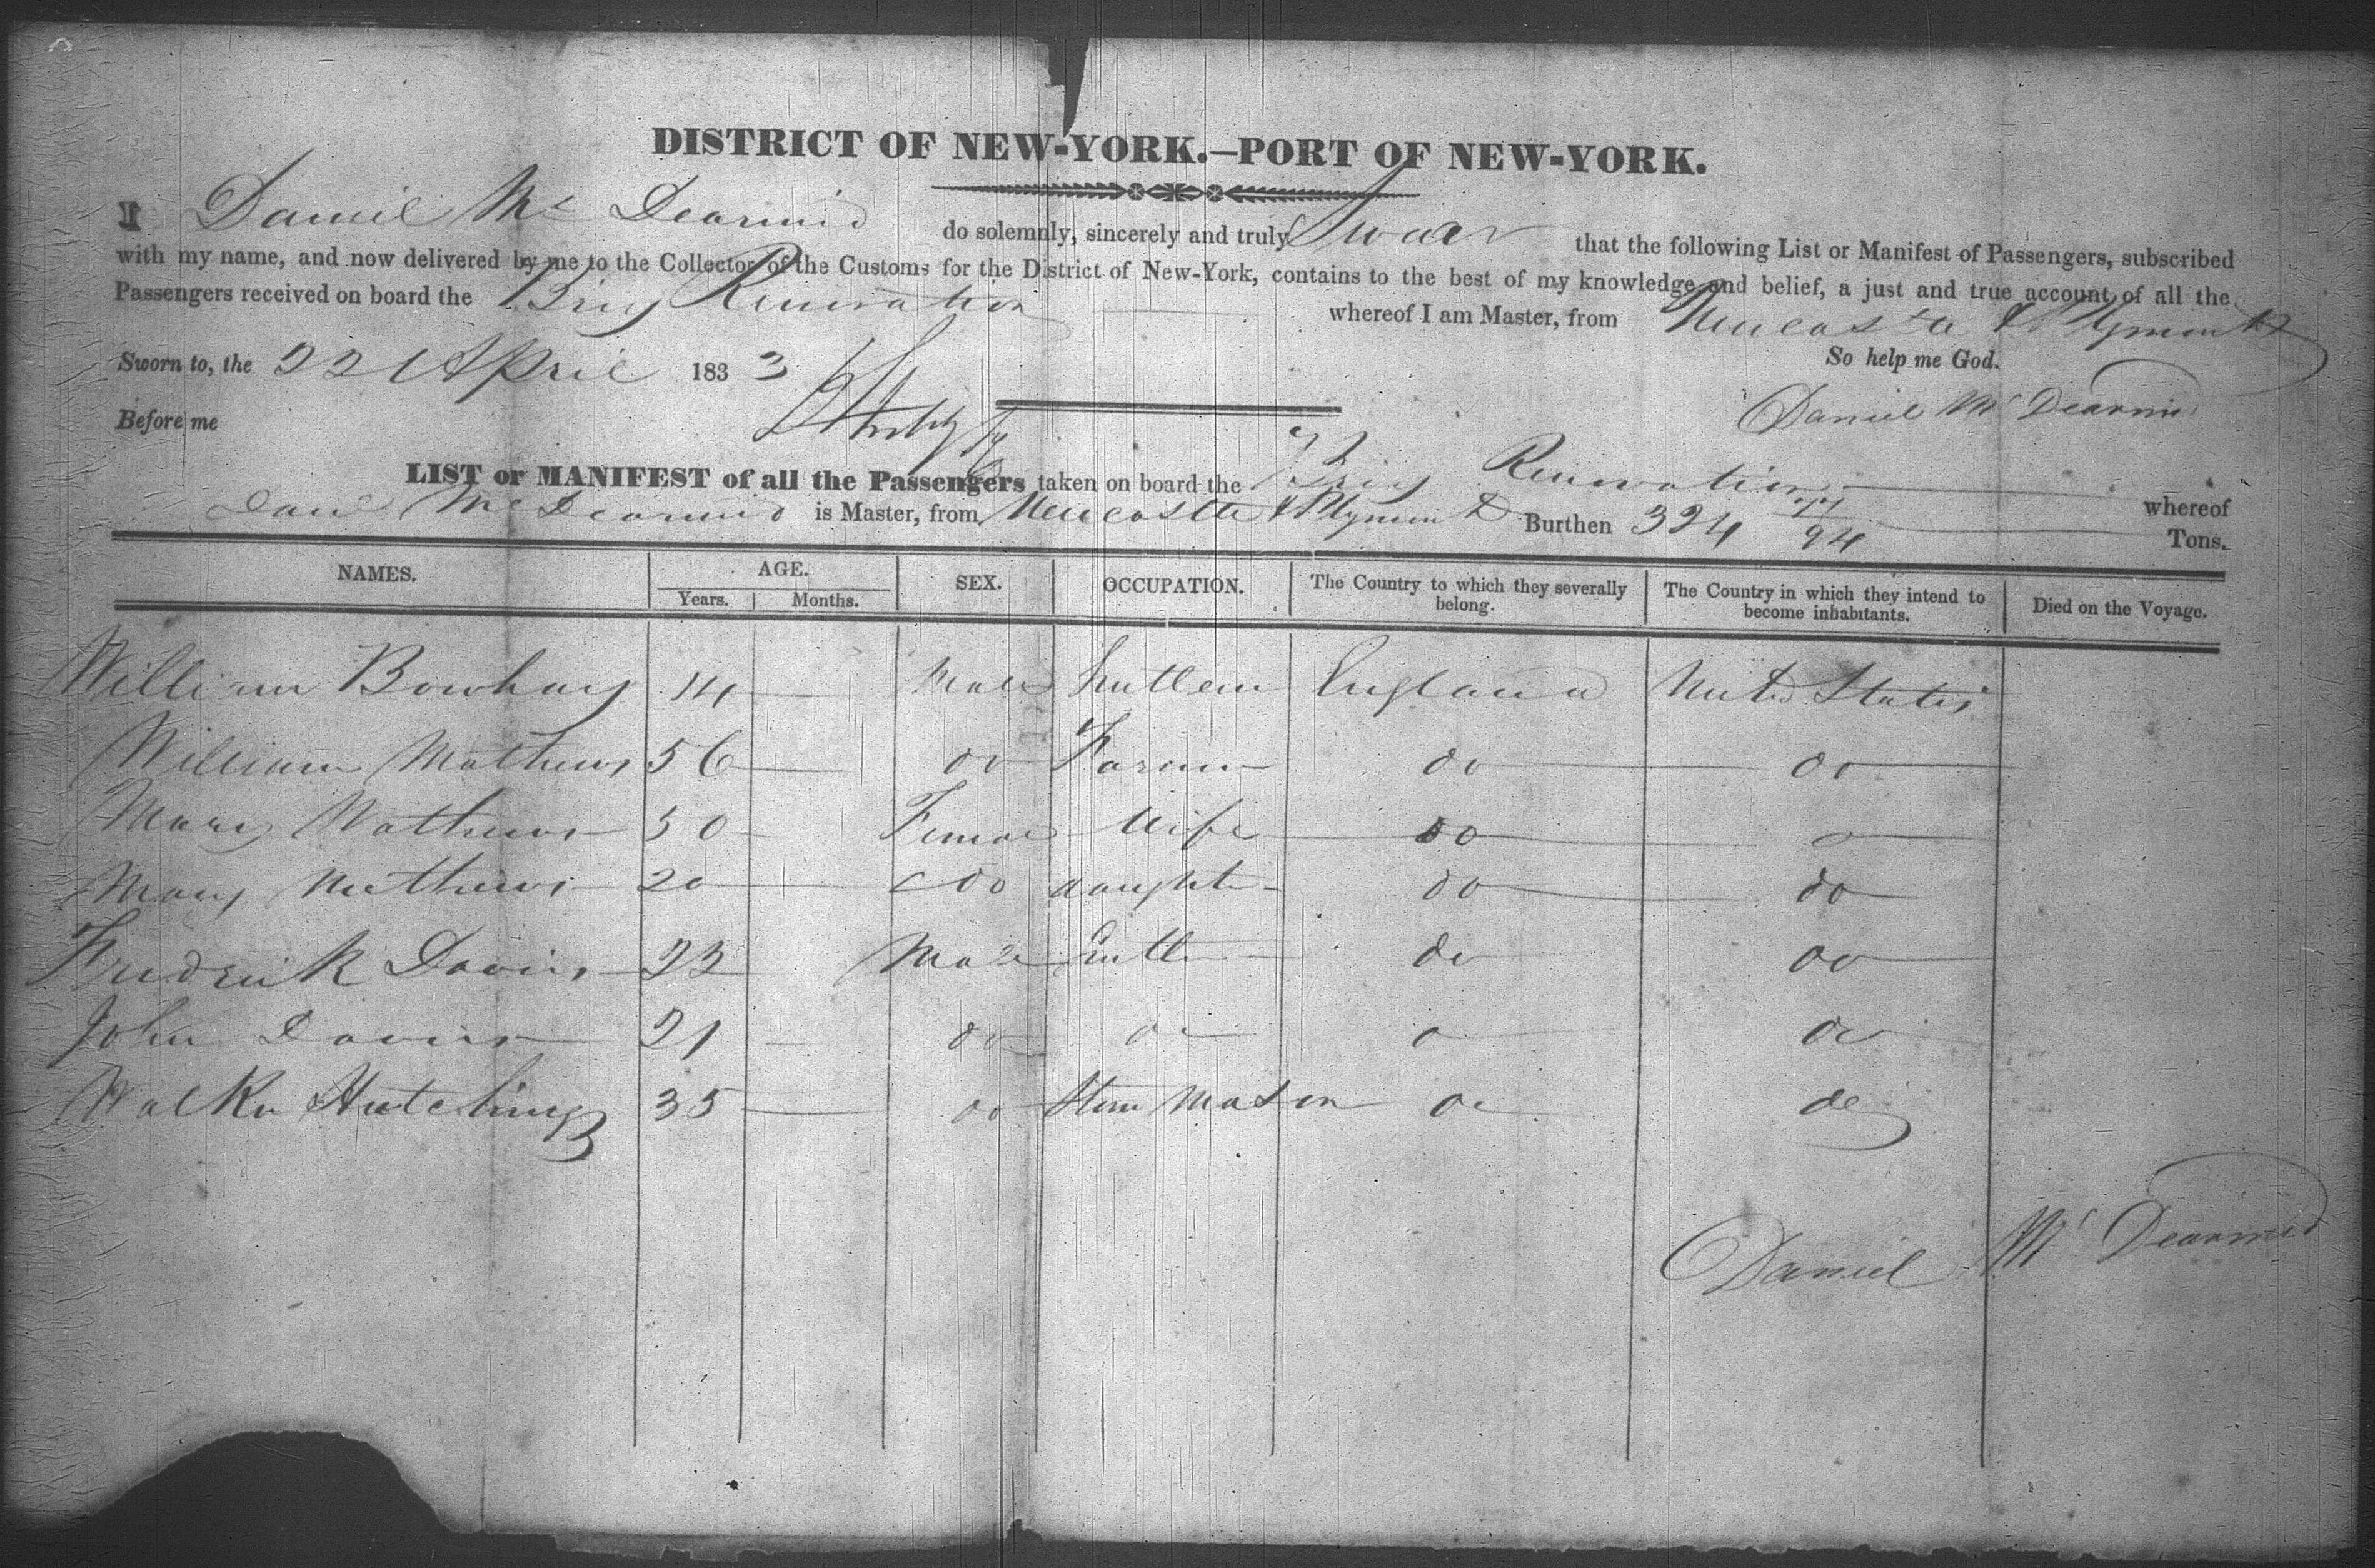 DISTRICT OF NEW-YORK.—PORT OF NEW-YORK.
I Daniel Mc Dearmid do solemnly, sincerely and truly Swear that the following List or Manifest of Passengers, subscribed
with my name, and now delivered by me to the Collector of the Customs for the District of New-York, contains to the best of my knowledge and belief, a just and true account of all the
Passengers received on board the Brig Renovation whereof I am Master, from Newcastle & Plymouth
So help me God.
Sworn to, the 22 April 1833
Daniel Mc Dearmid
Before me
LIST or MANIFEST of all the Passengers taken on board the Brig Renovation whereof
Danl Mc Dearmid is Master, from Newcastle & Plymouth Burthen 324 94 Tons.
NAMES. AGE. SEX. OCCUPATION. The Country to which they severally belong. The Country in which they intend to become inhabitants. Died on the Voyage.
Years. Months.
William Bowhay 14 Male England United States
William Mathews 56 do Farmer do do
Mary Mathews 50 Female Wife do do
Mary Mathews 20 do daught do do
Fredrick Davis 23 Male do do
John Davis 21 do do do do
Walker Hutchings 35 do Stone Mason do do
Daniel Mc Dearmid